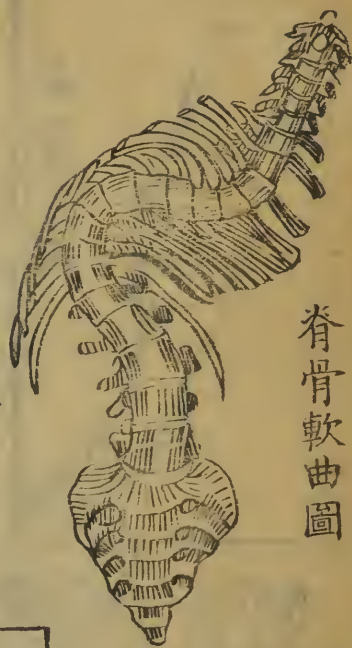 脊骨軟曲圖